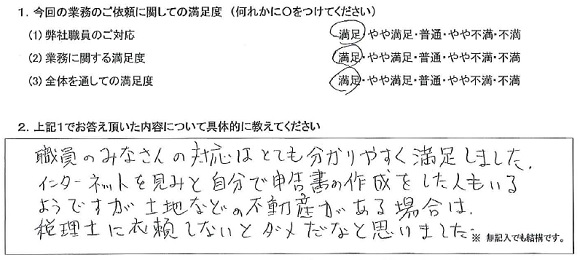 1. 今回の業務のご依頼に関しての満足度 (何れかに〇をつけてください)
(1) 弊社職員のご対応 満足・やや満足・普通・やや不満・不満
(2) 業務に関する満足度 満足・やや満足・普通・やや不満・不満
(3) 全体を通しての満足度 満足・やや満足・普通・やや不満・不満
2. 上記1でお答え頂いた内容について具体的に教えてください
職員のみなさんの対応はとても分かりやすく満足しました.
インターネットを見みと自分で申告書の作成をした人もいる
ようですが土地などの不動産がある場合は.
税理士に依頼しないとダメだなと思いました.
※ 無記入でも結構です。